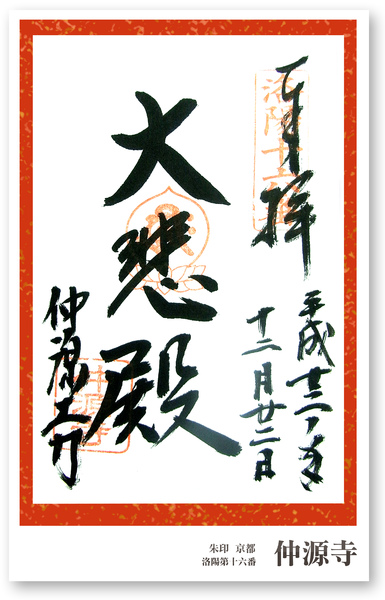 奉拝
洛陽十六番
平成廿二年
十二月廿二日
大悲殿
仲源寺
仲源寺
朱印 京都
洛陽第十六番
仲源寺